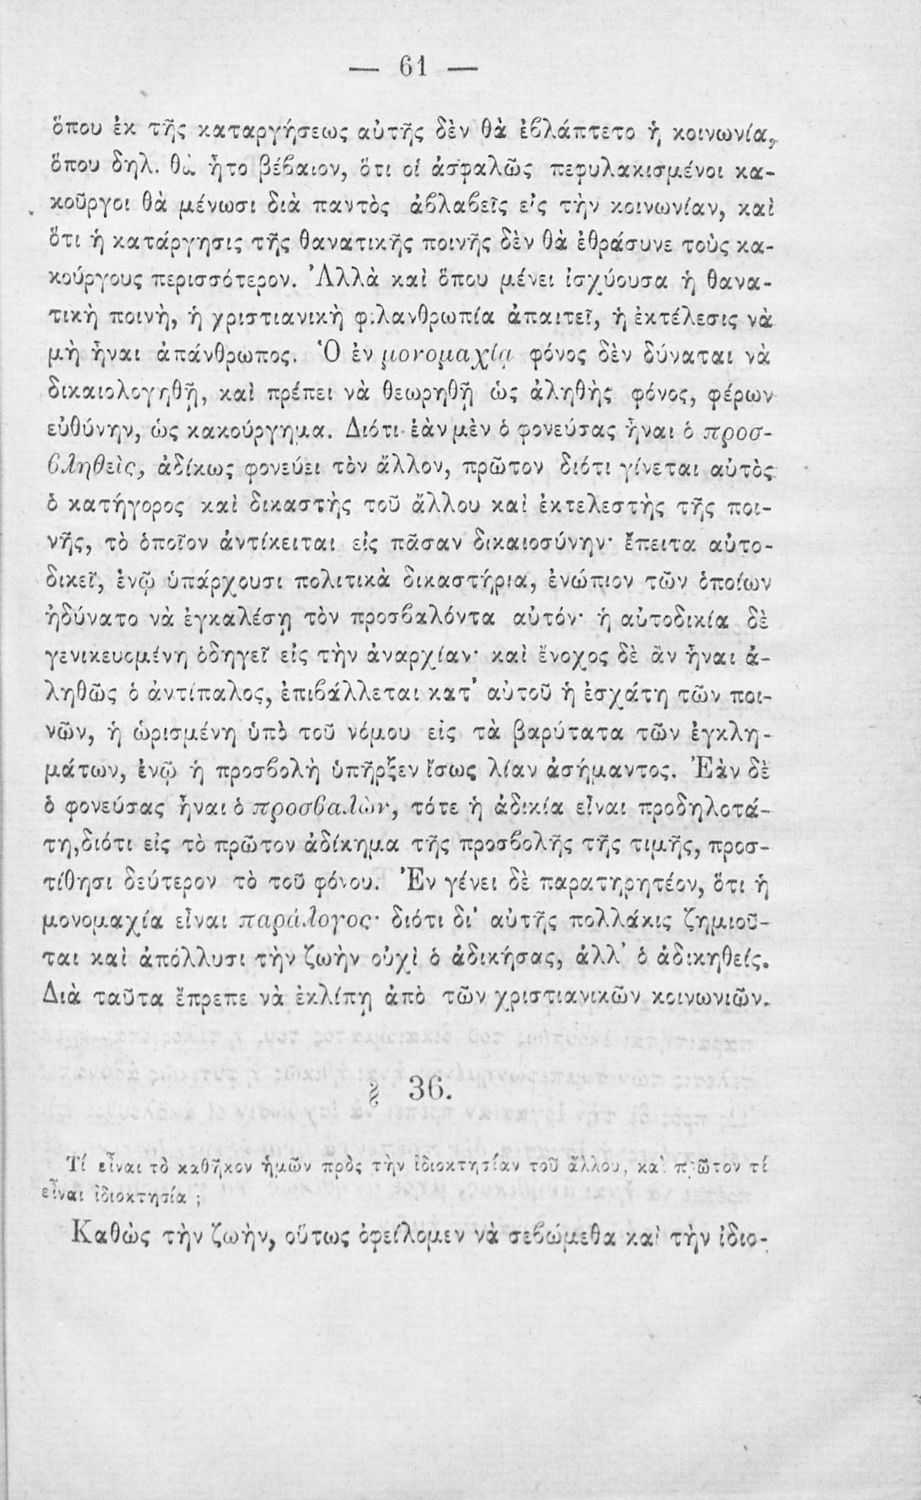 — 61 —
ὅπου ἐκ τῆς καταργήσεως αὐτῆς δὲν θὰ ἐβλάπτετο ἡ κοινωνία,
ὅπου δηλ. θὰ ἦτο βέβαιον, ὅτι οἱ ἀσφαλῶς πεφυλακισμένοι κα-
κοῦργοι θὰ μένωσι διὰ παντὸς ἀβλαβεῖς εἰς τὴν κοινωνίαν, καὶ
ὅτι ἡ κατάργησις τῆς θανατικῆς ποινῆς δὲν θὰ ἐθράσυνε τοὺς κα-
κούργους περισσότερον. Ἀλλὰ καὶ ὅπου μένει ἰσχύουσα ἡ θανα-
τικὴ ποινὴ, ἡ χριστιανικὴ φιλανθρωπία ἀπαιτεῖ, ἡ ἐκτέλεσις νὰ
μὴ ἦναι ἀπάνθρωπος. Ὁ ἐν μονομαχίᾳ φόνος δὲν δύναται νὰ
δικαιολογηθῇ, καὶ πρέπει νὰ θεωρηθῇ ὡς ἀληθὴς φόνος, φέρων
εὐθύνην, ὡς κακούργημα. Διότι ἐὰν μὲν ὁ φονεύσας ἦναι ὁ προσ-
βληθεὶς, ἀδίκως φονεύει τὸν ἄλλον, πρῶτον διότι γίνεται αὐτὸς
ὁ κατήγορος καὶ δικαστὴς τοῦ ἄλλου καὶ ἐκτελεστὴς τῆς ποι-
νῆς, τὸ ὁποῖον ἀντίκειται εἰς πᾶσαν δικαιοσύνην· ἔπειτα αὐτο-
δικεῖ, ἐνῷ ὑπάρχουσι πολιτικὰ δικαστήρια, ἐνώπιον τῶν ὁποίων
ἠδύνατο νὰ ἐγκαλέσῃ τὸν προσβαλόντα αὐτόν· ἡ αὐτοδικία δὲ
γενικευομένη ὁδηγεῖ εἰς τὴν ἀναρχίαν· καὶ ἔνοχος δὲ ἂν ἦναι ἀ-
ληθῶς ὁ ἀντίπαλος, ἐπιβάλλεται κατ’ αὐτοῦ ἡ ἐσχάτη τῶν ποι-
νῶν, ἡ ὡρισμένη ὑπὸ τοῦ νόμου εἰς τὰ βαρύτατα τῶν ἐγκλη-
μάτων, ἐνῷ ἡ προσβολὴ ὑπῆρξεν ἴσως λίαν ἀσήμαντος. Ἐὰν δὲ
ὁ φονεύσας ἦναι ὁ προσβαλὼν, τότε ἡ ἀδικία εἶναι προδηλοτά-
τη,διότι εἰς τὸ πρῶτον ἀδίκημα τῆς προσβολῆς τῆς τιμῆς, προσ-
τίθησι δεύτερον τὸ τοῦ φόνου. Ἐν γένει δὲ παρατηρητέον, ὅτι ἡ
μονομαχία εἶναι παράλογος· διότι δι’ αὐτῆς πολλάκις ζημιοῦ-
ται καὶ ἀπόλλυσι τὴν ζωὴν οὐχὶ ὁ ἀδικήσας, ἀλλ’ ὁ ἀδικηθείς.
Διὰ ταῦτα ἔπρεπε νὰ ἐκλίπῃ ἀπὸ τῶν χριστιανικῶν κοινωνιῶν.
§ 36.
Τί εἶναι τὸ καθῆκον ἡμῶν πρὸς τὴν ἰδιοκτησίαν τοῦ ἄλλου, καὶ πρῶτον τί
εἶναι ἰδιοκτησία ;
Καθὼς τὴν ζωὴν, οὕτως ὀφείλομεν νὰ σεβώμεθα καὶ τὴν ἰδιο-